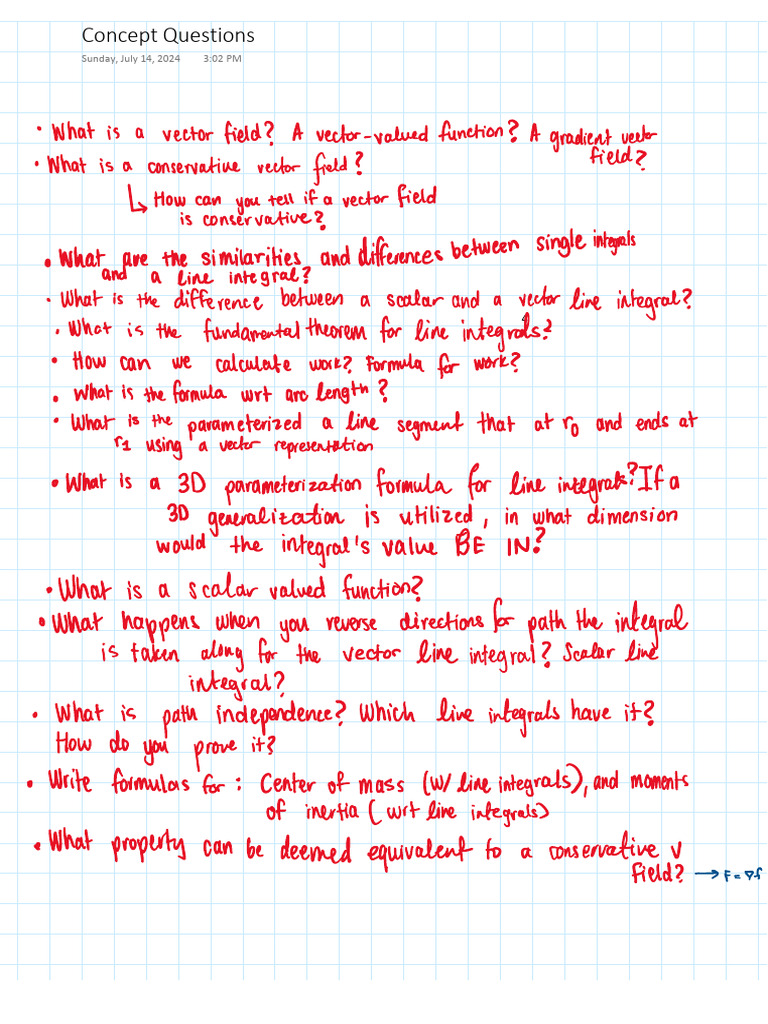 Concept Questions
Sunday, July 14, 2024 3:02 PM
• What is a vector field? A vector-valued function? A gradient vector
field?
• What is a conservative vector field?
↳ How can you tell if a vector field
is conservative?
• What are the similarities and differences between single integrals
and a line integral?
• What is the difference between a scalar and a vector line integral?
• What is the fundamental theorem for line integrals?
• How can we calculate work? Formula for work?
• What is the formula wrt arc length?
• What is the parameterized a line segment that at r₀ and ends at
r₁ using a vector representation
• What is a 3D parameterization formula for line integrals? If a
3D generalization is utilized, in what dimension
would the integral's value BE IN?
• What is a scalar valued function?
• What happens when you reverse directions for path the integral
is taken along for the vector line integral? Scalar line
integral?
• What is path independence? Which line integrals have it?
How do you prove it?
• Write formulas for: Center of mass (w/ line integrals), and moments
of inertia (wrt line integrals)
• What property can be deemed equivalent to a conservative v
field? → F = ∇f